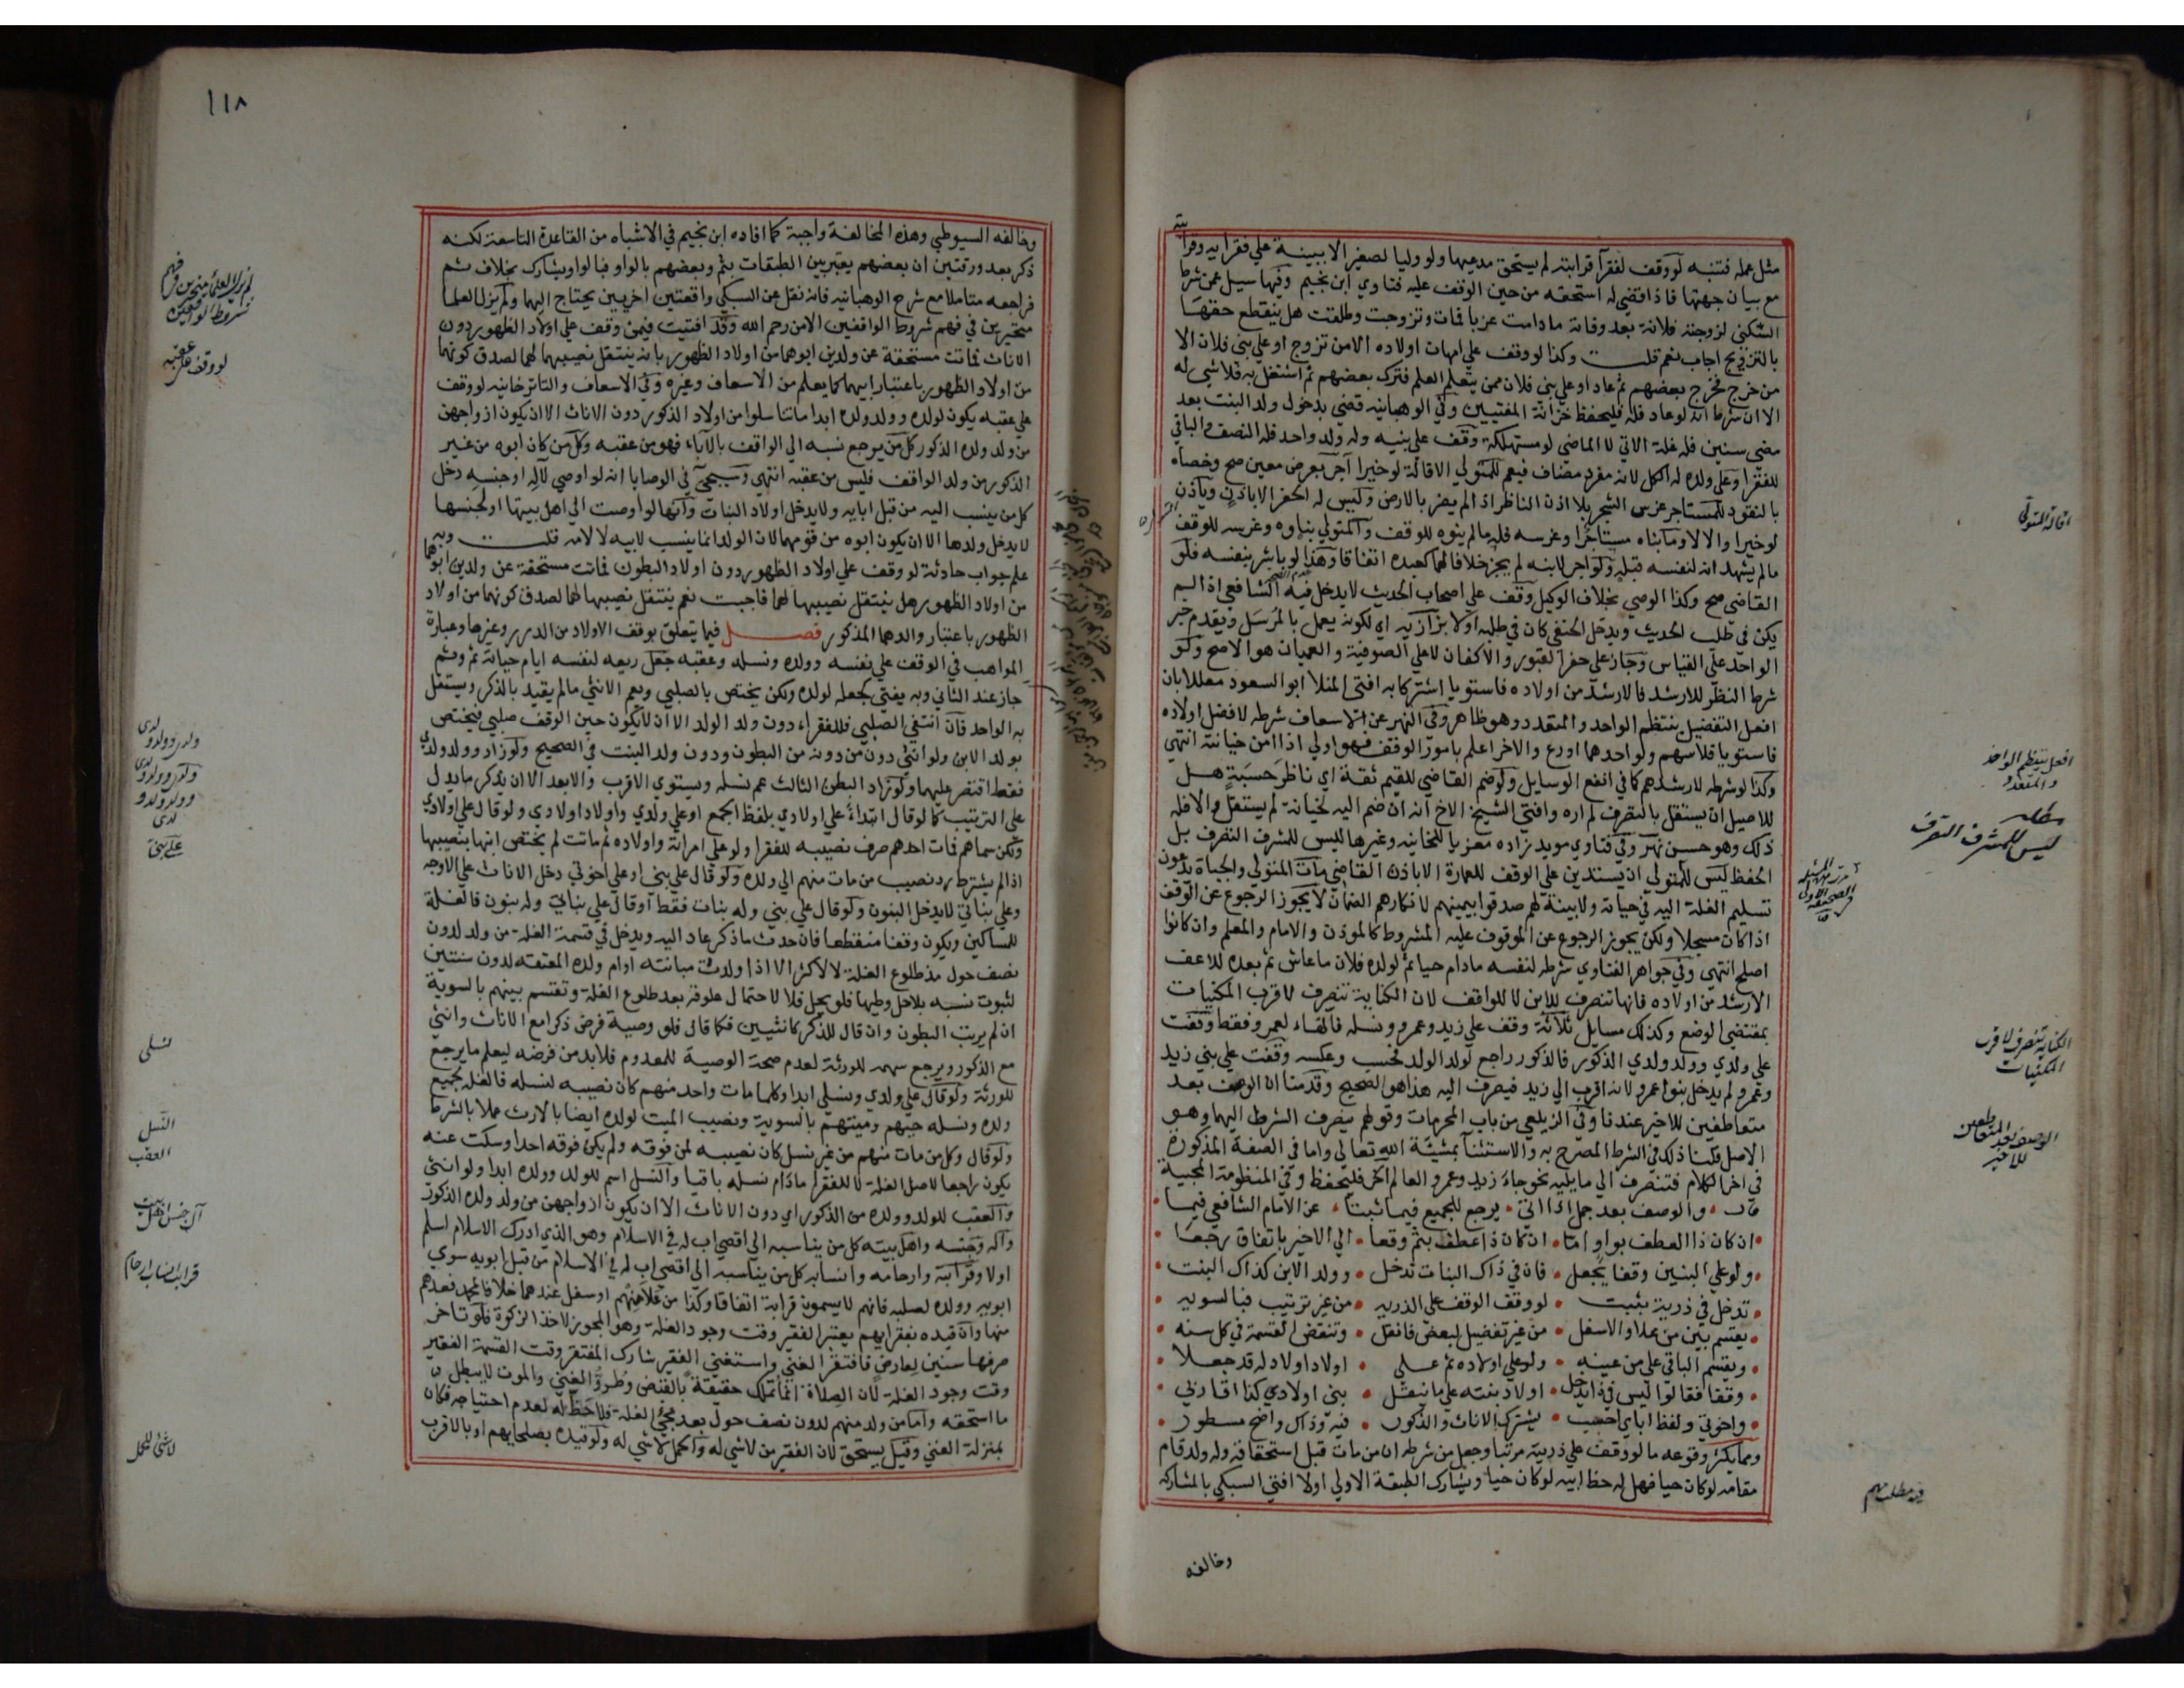 مثل عمله فتنبه لو وقف لفقرآ قرابته لم يستحق مدعيها ولو وليا لصغير الا ببينة علي فقرابيه وقرابته
مع بيان جهتها فاذا قضي له استحقه من حين الوقف عليه فتاوي ابن نجيم وفيها سيل عمن شرط
السكني لزوجته فلانة بعد وفاته مادامت عزبا فمات وتزوجت وطلقت هل ينقطع حقها
بالتزويج اجاب نعم قلت وكذا لو وقف علي امهات اولاده الا من تزوج او علي بني فلان الا
من خرج فخرج بعضهم ثم عاد او علي بني فلان ممن يتعلم العلم فترك بعضهم ثم اشتغل به فلا شي له
الا ان شرط انه لو عاد فله فليحفظ خزانة المفتيين وفي الوهبانيه قضي بدخول ولد البنت بعد
مضي سنين فله غلة الاتي لا الماضي لو مستهلكة وقف علي بنيه وله ولد واحد فله النصف والباقي
للفقرا وعلي ولده له الكل لانه مفرد مضاف فيعم للمتولي الاقالة لو خيرا آجر بعرض معين صح وخصاه
بالنقود للمستاجر غرس الشجر بلا اذن الناظر اذا لم يضر بالارض وليس له الحفر الا باذن وياذن
لو خيرا والا لا وما بناه مستاجرا وغرسه فله ما لم ينوه للوقف والمتولي بناوه وغرسه للوقف
ما لم يشهد انه لنفسه قبله ولو اجر لابنه لم يجز خلافا لهما كعبده اتفاقا وهذا لو باشر بنفسه فلو
القاضي صح وكذا الوصي بخلاف الوكيل وقف علي اصحاب الحديث لا يدخل فيه الشافعي اذا لم
يكن في طلب الحديث ويدخل الحنفي كان في طلبه اولا بزازيه اي لكونه يعمل بالمرسل ويقدم خبر
الواحد علي القياس وجاز علي حفر القبور والاكفان لا علي الصوفية والعميان هو الاصح ولو
شرط النظر للارشد فالارشد من اولاده فاستويا اشتركا به افتي المنلا ابو السعود معللا بان
افعل التفضيل ينتظم الواحد والمتعدد وهو ظاهر وفي النهر عن الاسعاف شرطه لافضل اولاده
فاستويا فلاسهم ولو احدهما اورع والاخر اعلم بامور الوقف فهو اولي اذا امن خيانته انتهي
وكذا لو شرطه لارشدهم كما في انفع الوسايل ولو ضم القاضي للقيم ثقة اي ناظر حسبة هل
للاصيل ان يستقل بالتصرف لم اره وافتي الشيخ الاخ انه ان ضم اليه لخيانة لم يستقل والا فله
ذلك وهو حسن نهر وفي فتاوي مويد زاده معزيا للخانيه وغيرها ليس للمشرف التصرف بل
الحفظ ليس للمتولي ان يستدين علي الوقف للعمارة الا باذن القاضي مات المتولي والجباة يدعون
تسليم الغلة اليه في حياته ولا بينة لهم صدقوا بيمينهم لانكارهم الضمان لا يجوز الرجوع عن الوقف
اذا كان مسجلا ولكن يجوز الرجوع عن الموقوف عليه المشروط كالموذن والامام والمعلم وان كانوا
اصلح انتهي وفي جواهر الفتاوي شرطه لنفسه مادام حيا ثم لولده فلان ما عاش ثم بعده للاعف
الارشد من اولاده فانها تنصرف للابن لا للواقف لان الكناية تنصرف لاقرب المكنيات
بمقتضي الوضع وكذلك مسايل ثلاثة وقف علي زيد وعمرو ونسله فالهاء لعمرو فقط وقفت
علي ولدي وولد ولدي الذكور فالذكور راجع لولد الولد فحسب وعكسه وقفت علي بني زيد
وعمرو لم يدخل بنوا عمرو لانه اقرب الي زيد فيصرف اليه هذا هو الصحيح وقدمنا ان الوصف بعد
متعاطفين للاخير عندنا وفي الزيلعي من باب المحرمات وقولهم ينصرف الشرط اليهما وهو
الاصل قلنا ذلك في الشرط المصرح به والاستثنآ بمشيئة الله تعالي واما في الصفة المذكورة
في اخر الكلام فتنصرف الي ما يليه نحو جاء زيد وعمرو العالم الخ فليحفظ وفي المنظومة المحبية
قال والوصف بعد جمل اذا اتي يرجع للجميع فيما ثبتا عن الامام الشافعي فيما
ان كان ذا العطف بواو اما ان كان ذا عطف بثم وقعا الي الاخير باتفاق رجعا
ولو علي البنين وقفا يجعل فان في ذاك البنات تدخل وولد الابن كذاك البنت
تدخل في ذرية بثبت لو وقف الوقف علي الذريه من غير ترتيب فبالسويه
يقسم بين من علا والاسفل من غير تفضيل لبعض فانقل وتنقض القسمة في كل سنه
ويقسم الباقي علي من عينه ولو علي اولاده ثم علي اولاد اولاد له قد جعلا
وقفا فقالوا ليس في ذا يدخل اولاد بنته علي ما ينقل بني اولادي كذا اقاربي
واخوتي ولفظ اباي احسب يشترك الاناث والذكور فيه وذاك واضح مسطور
ومما يكثر وقوعه ما لو وقف علي ذريته مرتبا وجعل من شرطه ان من مات قبل استحقاقه وله ولد قام
مقامه لو كان حيا فهل له حظ ابيه لو كان حيا ويشارك الطبقة الاولي اولا افتي السبكي بالمشاركه
وخالفه
اقالة المتولي
افعل ينتظم الواحد
والمتعدد
مطلب
ليس للمشرف التصرف
الكناية تنصرف لاقرب
المكنيات
الوصف بعد المتعاطفين
للاخير
فيه مطلب مهم
١١٨
وخالفه السيوطي وهذه المخالفة واجبة كما افاده ابن نجيم في الاشباه من القاعدة التاسعة لكنه
ذكر بعد ورقتين ان بعضهم يعتبر بين الطبقات بثم وبعضهم بالواو فبالواو يشارك بخلاف ثم
فراجعه متاملا مع شرح الوهبانيه فانه نقل عن السبكي واقعتين اخريين يحتاج اليهما ولم يزل العلما
متحيرين في فهم شروط الواقفين الا من رحم الله وقد افتيت فيمن وقف علي اولاد الظهور دون
الاناث فماتت مستحقة عن ولدين ابوهما من اولاد الظهور بانه ينتقل نصيبهما لهما لصدق كونهما
من اولاد الظهور باعتبار ابيهما كما يعلم من الاسعاف وغيره وفي الاسعاف والتاترخانيه لو وقف
علي عقبه يكون لولده وولد ولده ابدا ما تناسلوا من اولاد الذكور دون الاناث الا ان يكون ازواجهن
من ولد ولده الذكور كل من يرجع نسبه الي الواقف بالآباء فهو من عقبه وكل من كان ابوه من غير
الذكور من ولد الواقف فليس من عقبه انتهي وسيجئ في الوصايا انه لو اوصي لآله او جنسه دخل
كل من ينسب اليه من قبل ابايه ولا يدخل اولاد البنات وانها لو اوصت الي اهل بيتها او لجنسها
لا يدخل ولدها الا ان يكون ابوه من قومها لان الولد انما ينسب لابيه لا لامه قلت وبه
علم جواب حادثة لو وقف علي اولاد الظهور دون اولاد البطون فماتت مستحقة عن ولدين ابوهما
من اولاد الظهور هل ينتقل نصيبها لهما فاجبت نعم ينتقل نصيبها لهما لصدق كونهما من اولاد
الظهور باعتبار والدهما المذكور فصل فيما يتعلق بوقف الاولاد من الدرر وغيرها وعبارة
المواهب في الوقف علي نفسه وولده ونسله وعقبه جعل ريعه لنفسه ايام حياته ثم وثم
جاز عند الثاني وبه يفتي كجعله لولده ولكن يختص بالصلبي ويعم الانثي ما لم يقيد بالذكر ويستقل
به الواحد فان انتفي الصلبي فللفقراء دون ولد الولد الا ان لا يكون حين الوقف صلبي فيختص
بولد الابن ولو انثي دون من دونه من البطون ودون ولد البنت في الصحيح ولو زاد وولد ولدي
فقط اقتصر عليهما ولو زاد البطن الثالث عم نسله ويستوي الاقرب والابعد الا ان يذكر ما يدل
علي الترتيب كما لو قال ابتداءً علي اولادي بلفظ الجمع او علي ولدي واولاد اولادي ولو قال علي اولادي
ولكن سماهم فمات احدهم صرف نصيبه للفقرا ولو علي امراته واولاده ثم ماتت لم يختص ابنها بنصيبها
اذا لم يشترط رد نصيب من مات منهم الي ولده ولو قال علي بني او علي اخوتي دخل الاناث علي الاوجه
وعلي بناتي لا يدخل البنون ولو قال علي بني وله بنات فقط او قال علي بناتي وله بنون فالغلة
للمساكين ويكون وقفا منقطعا فان حدث ما ذكر عاد اليه ويدخل في قسمة الغلة من ولد لدون
نصف حول مذ طلوع الغلة لا لاكثر الا اذا ولدت مبانته او ام ولده المعتقه لدون سنتين
لثبوت نسبه بلا حل وطيها فلو يحل فلا لاحتمال علوقه بعد طلوع الغلة وتقسم بينهم بالسوية
ان لم يرتب البطون وان قال للذكر كانثيين فكما قال فلو وصية فرض ذكرا مع الاناث وانثي
مع الذكور ويرجع سهمه للورثة لعدم صحة الوصية للمعدوم فلا بد من فرضه ليعلم ما يرجع
للورثة ولو قال علي ولدي ونسلي ابدا وكلما مات واحد منهم كان نصيبه لنسله فالغله لجميع
ولده ونسله حيهم وميتهم بالسوية ونصيب الميت لولده ايضا بالارث عملا بالشرط
ولو قال وكل من مات منهم من غير نسل كان نصيبه لمن فوقه ولم يكن فوقه احد او سكت عنه
يكون راجعا لاصل الغلة لا للفقرا مادام نسله باقيا والنسل اسم للولد وولده ابدا ولو انثي
والعقب للولد وولده من الذكور اي دون الاناث الا ان يكون ازواجهن من ولد ولده الذكور
وآله وجنسه واهل بيته كل من يناسبه الي اقصي اب له في الاسلام وهو الذي ادرك الاسلام اسلم
اولا وقرابته وارحامه وانسابه كل من يناسبه الي اقصي اب له في الاسلام من قبل ابويه سوي
ابويه وولده لصلبه فانهم لا يسمون قرابة اتفاقا وكذا من علا منهم او سفل عندهما خلافا لمحمد فعدهم
منها وان قيده بفقرايهم يعتبر الفقر وقت وجود الغلة وهو المجوز لاخذ الزكوة فلو تاخر
صرفها سنين لعارض فافتقر الغني واستغني الفقير شارك المفتقر وقت القسمة الفقير
وقت وجود الغلة لان الصلاة انما تملك حقيقة بالقبض وطرو الغني والموت لا يبطل
ما استحقه واما من ولد منهم لدون نصف حول بعد مجئ الغلة فلا حظ له لعدم احتياجه فكان
بمنزلة الغني وقيل يستحق لان الفقير من لا شي له والحمل لا شي له ولو قيده بصلحايهم او بالاقرب
لم يزل العلماء متحيرين في فهم
شروط الواقفين
لو وقف علي عقبه
نسلي
النسل
العقب
آل جنس اهل بيت
قرابة انساب ارحام
لا شئ للحمل